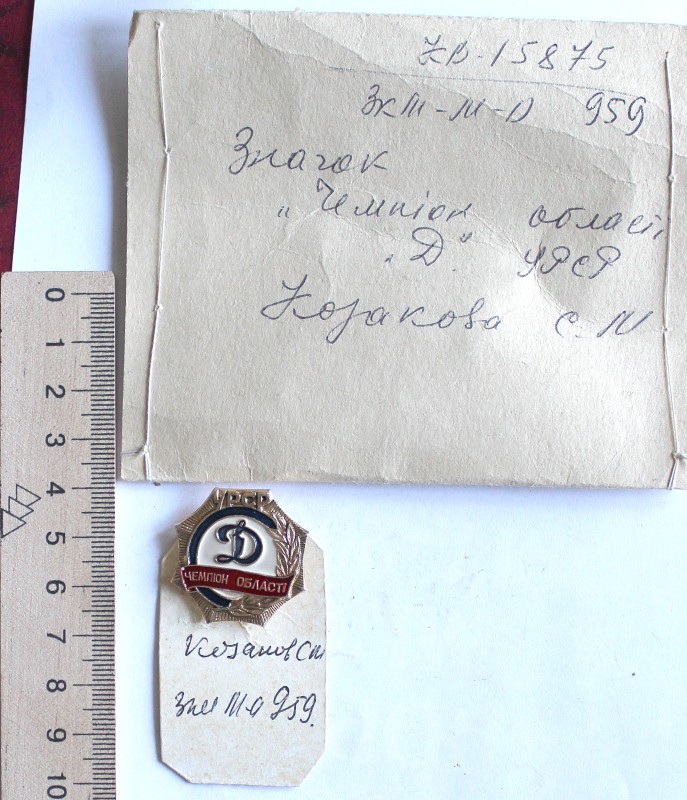 КВ-15875
ЗКМ-М-Д 959
Значок
„Чемпіон області
„Д" УРСР
Козакова С. М
0
1
2
3
4
5
6
7
8
9
10
УРСР
Д
ЧЕМПІОН ОБЛАСТІ
Козаков См
959.